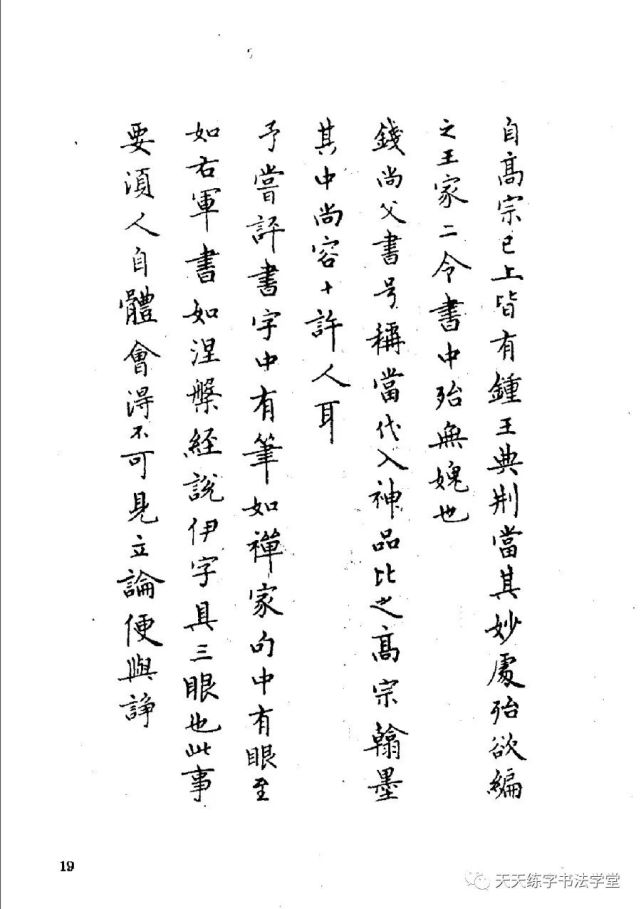 自高宗已上皆有鍾王典刑當其妙處殆欲編
之王家二令書中殆無媿也
錢尚父書号稱當代入神品比之高宗翰墨
其中尚容十許人耳
予嘗評書字中有筆如禪家句中有眼至
如右軍書如涅槃經說伊字具三眼也此事
要須人自體會得不可見立論便與諍
19
天天练字书法学堂